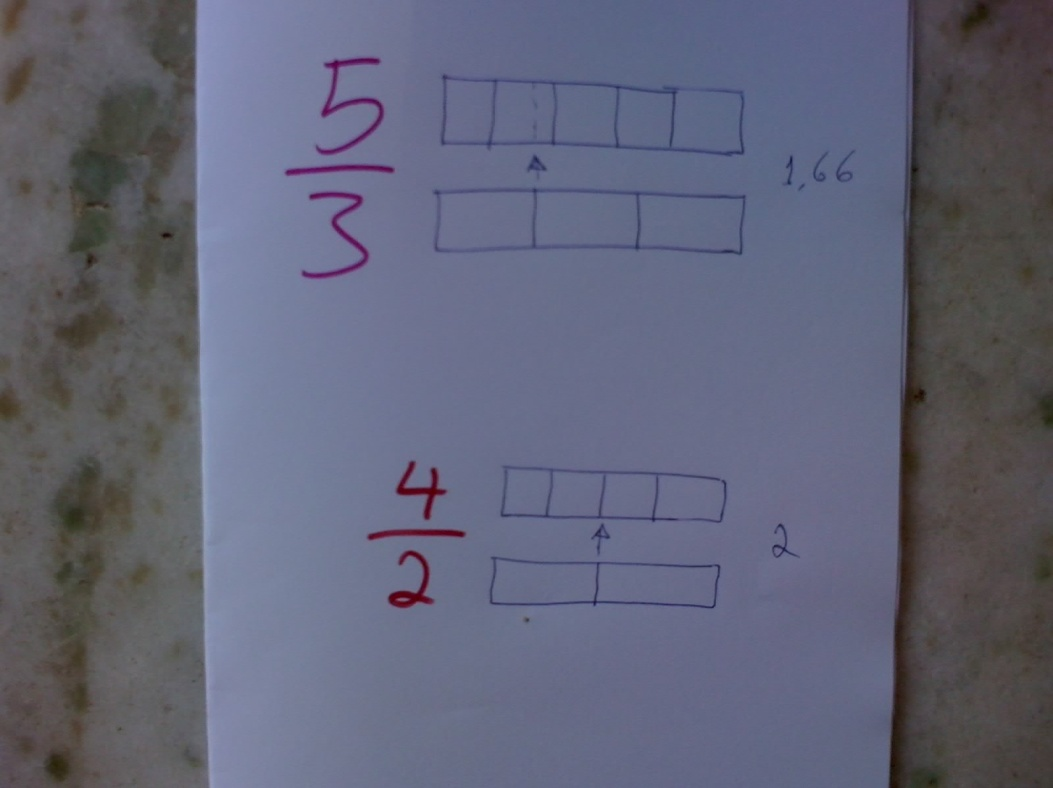 5
3
1,66
4
2
2